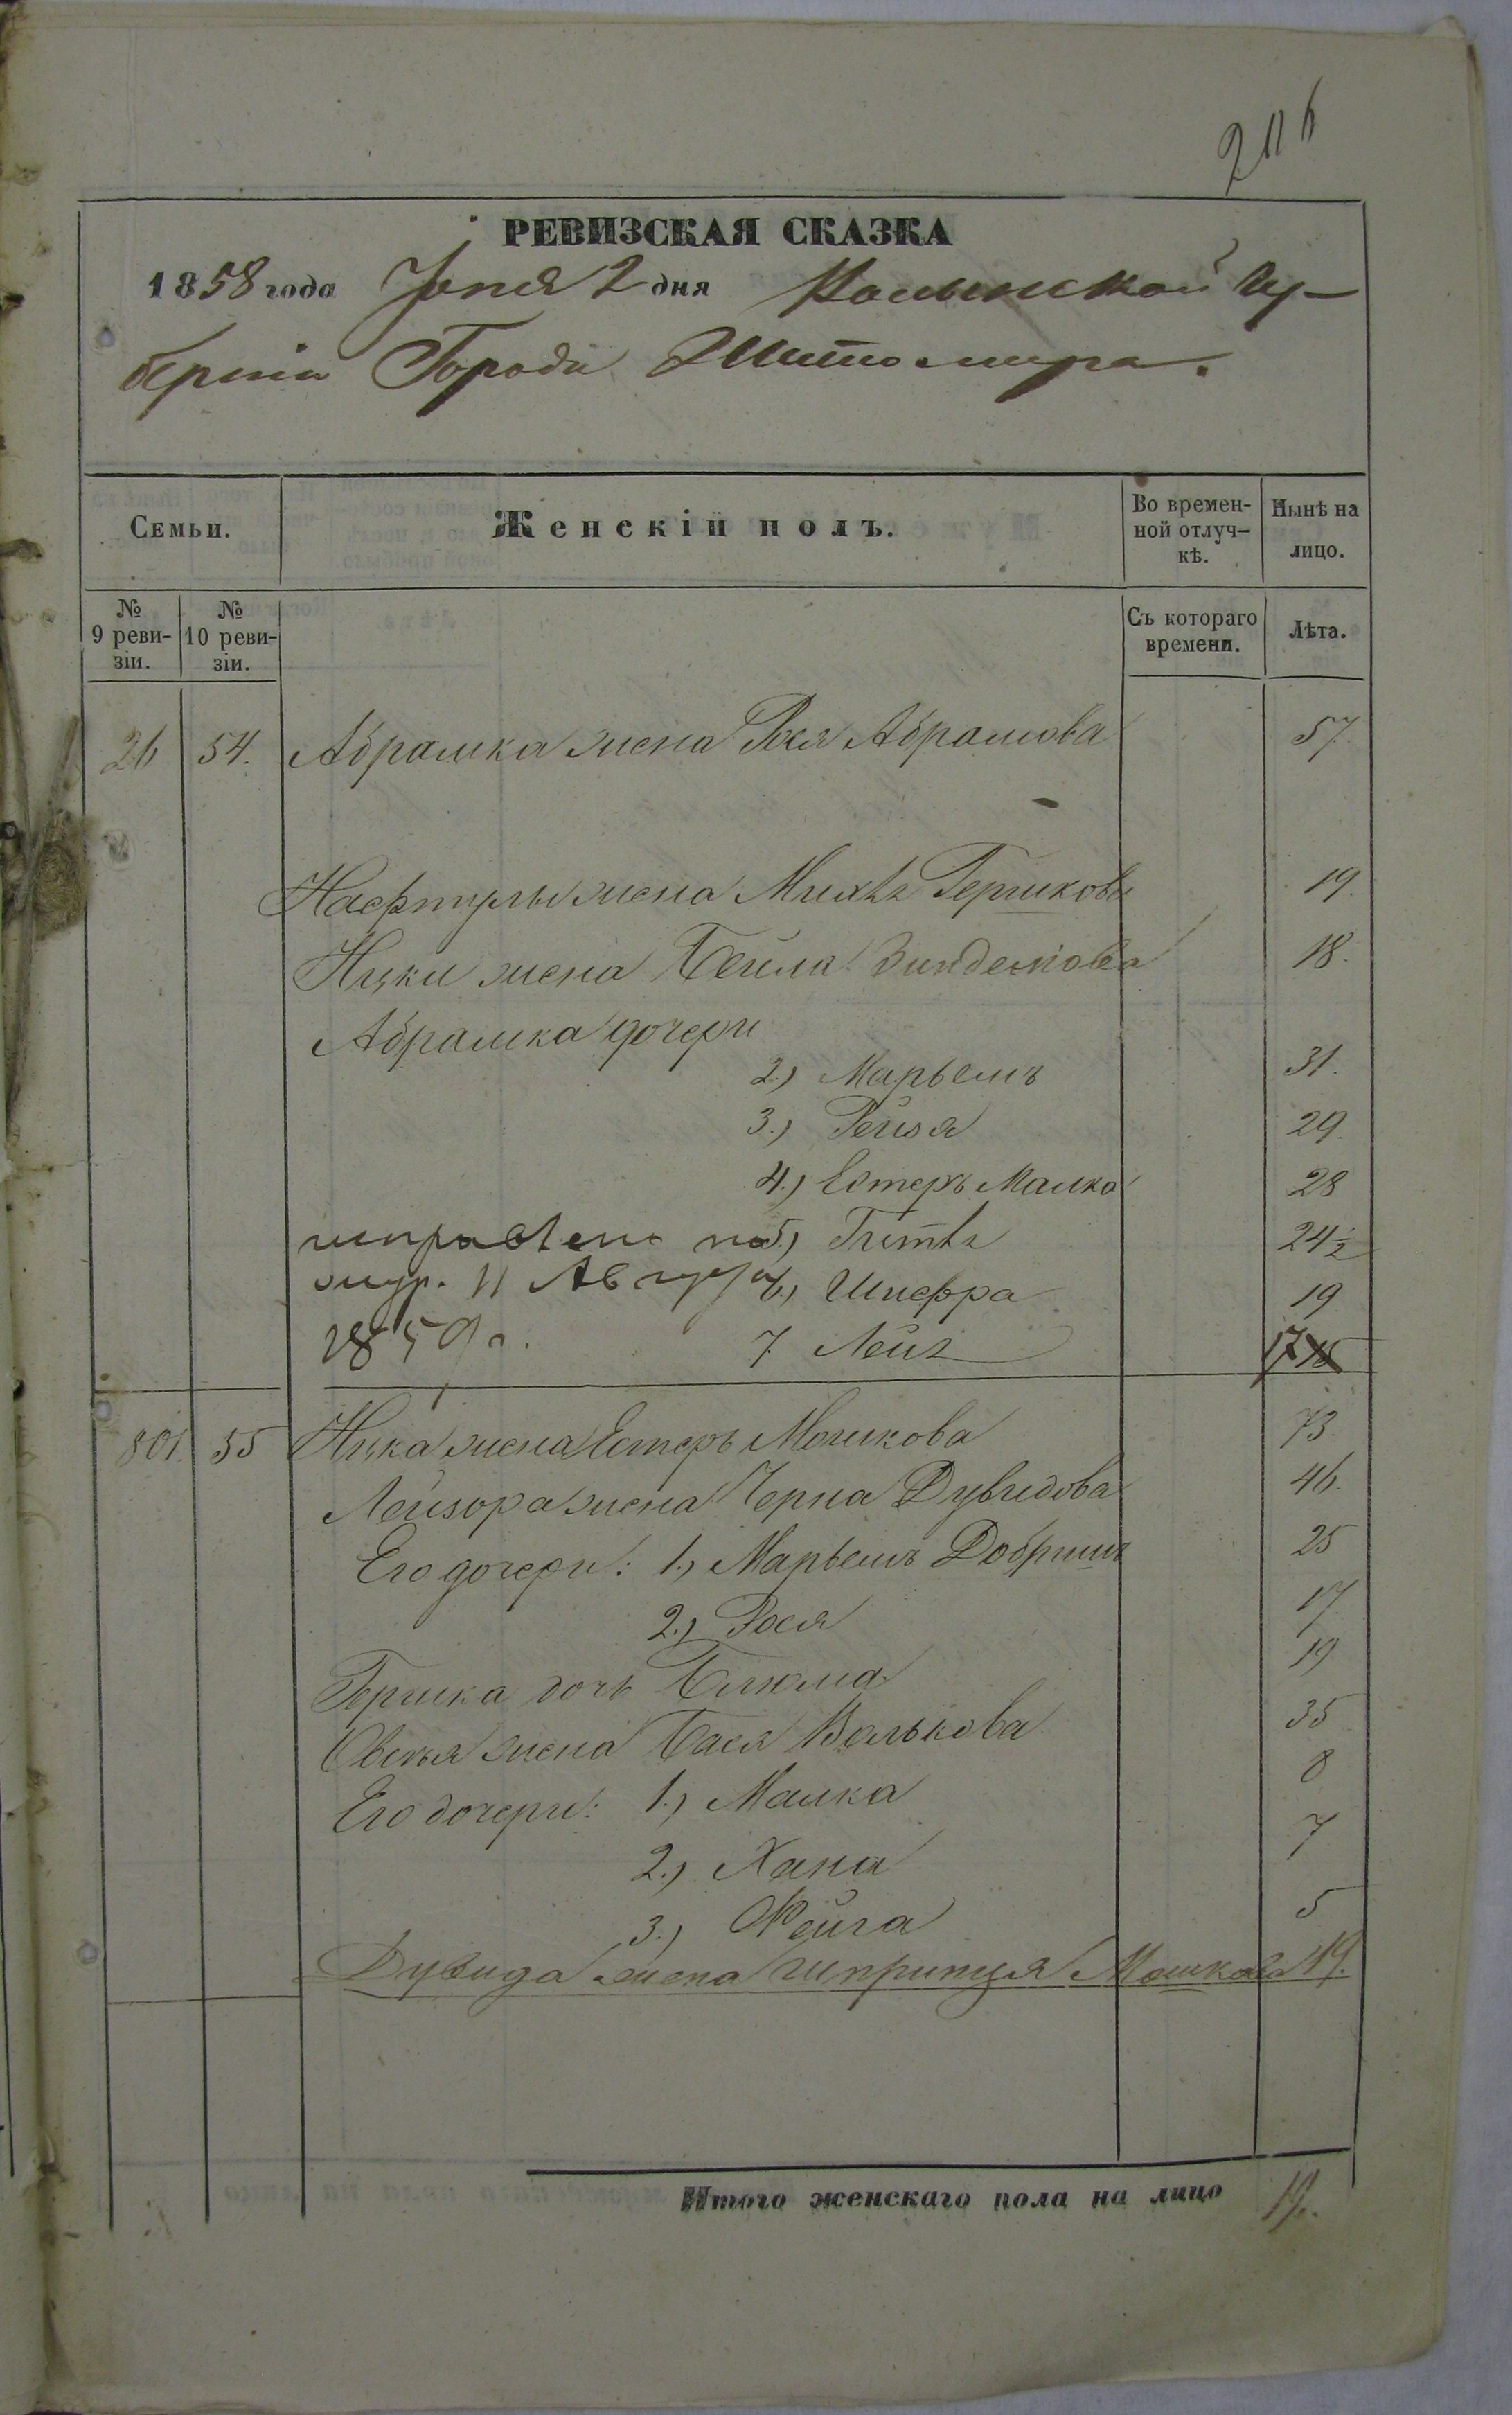 206
РЕВИЗСКАЯ СКАЗКА
1858 года Іюня 2 дня Волынской Гу-
берніи Города Житомира.
Семьи.
Женскій полъ.
Во времен-
ной отлуч-
кѣ.
Нынѣ на
лицо.
№
9 реви-
зіи.
№
10 реви-
зіи.
Съ котораго
времени.
Лѣта.
26 54. Абрамка жена Рося Абрамова 57.
Нафтулы жена Михля Гершкова 19.
Ицки жена Бейла 18.
Абрамка дочери
2.) Марьемъ 31.
3.) Рейзя 29.
4.) Естеръ Малка 28
исправлено по 5.) Гитля 24½
жур. 11 Августа 6.) Шифра 19
1859 г. 7 Лея 17
801. 55 Ицка жена Естеръ Мошкова 73.
Лейзора жена Черна Дувидова 46.
Его дочери: 1.) Марьемъ Добришъ 25
2.) Рося 17.
Гершка дочь Блюма 19
Овсѣя жена Бася Волькова 35
Его дочери: 1.) Малка 8
2.) Хана 7
3.) Фейга 5
Дувида жена Шпринця Мошкова 19.
Итого женскаго пола на лицо 19.